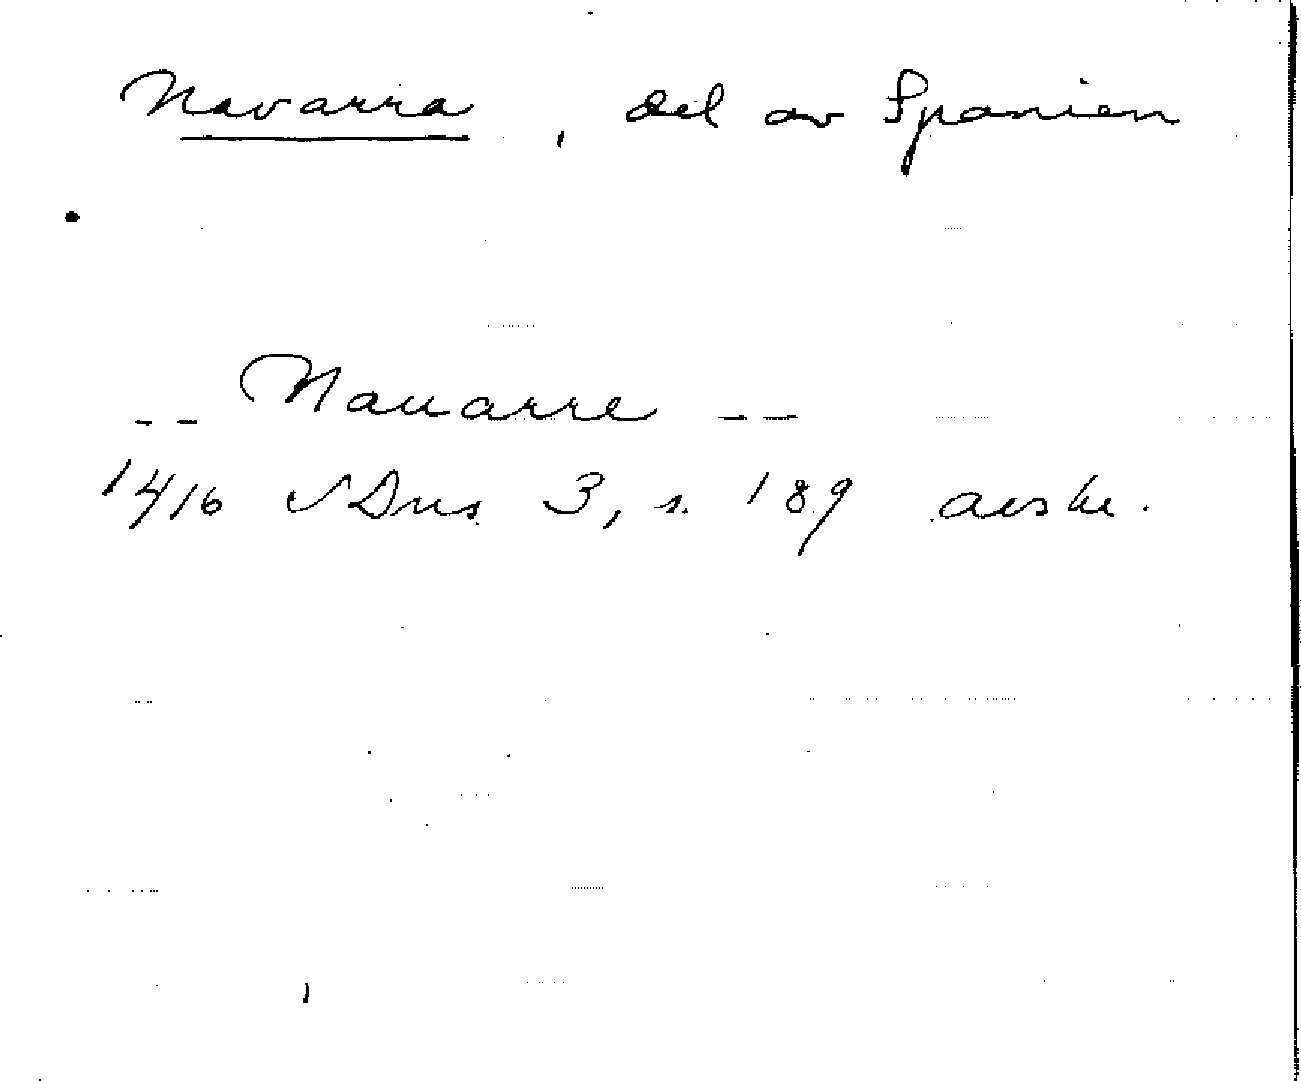 Navarra, del av Spanien
-- Nauarre --
1416 SDns 3, s. 189 avskr.